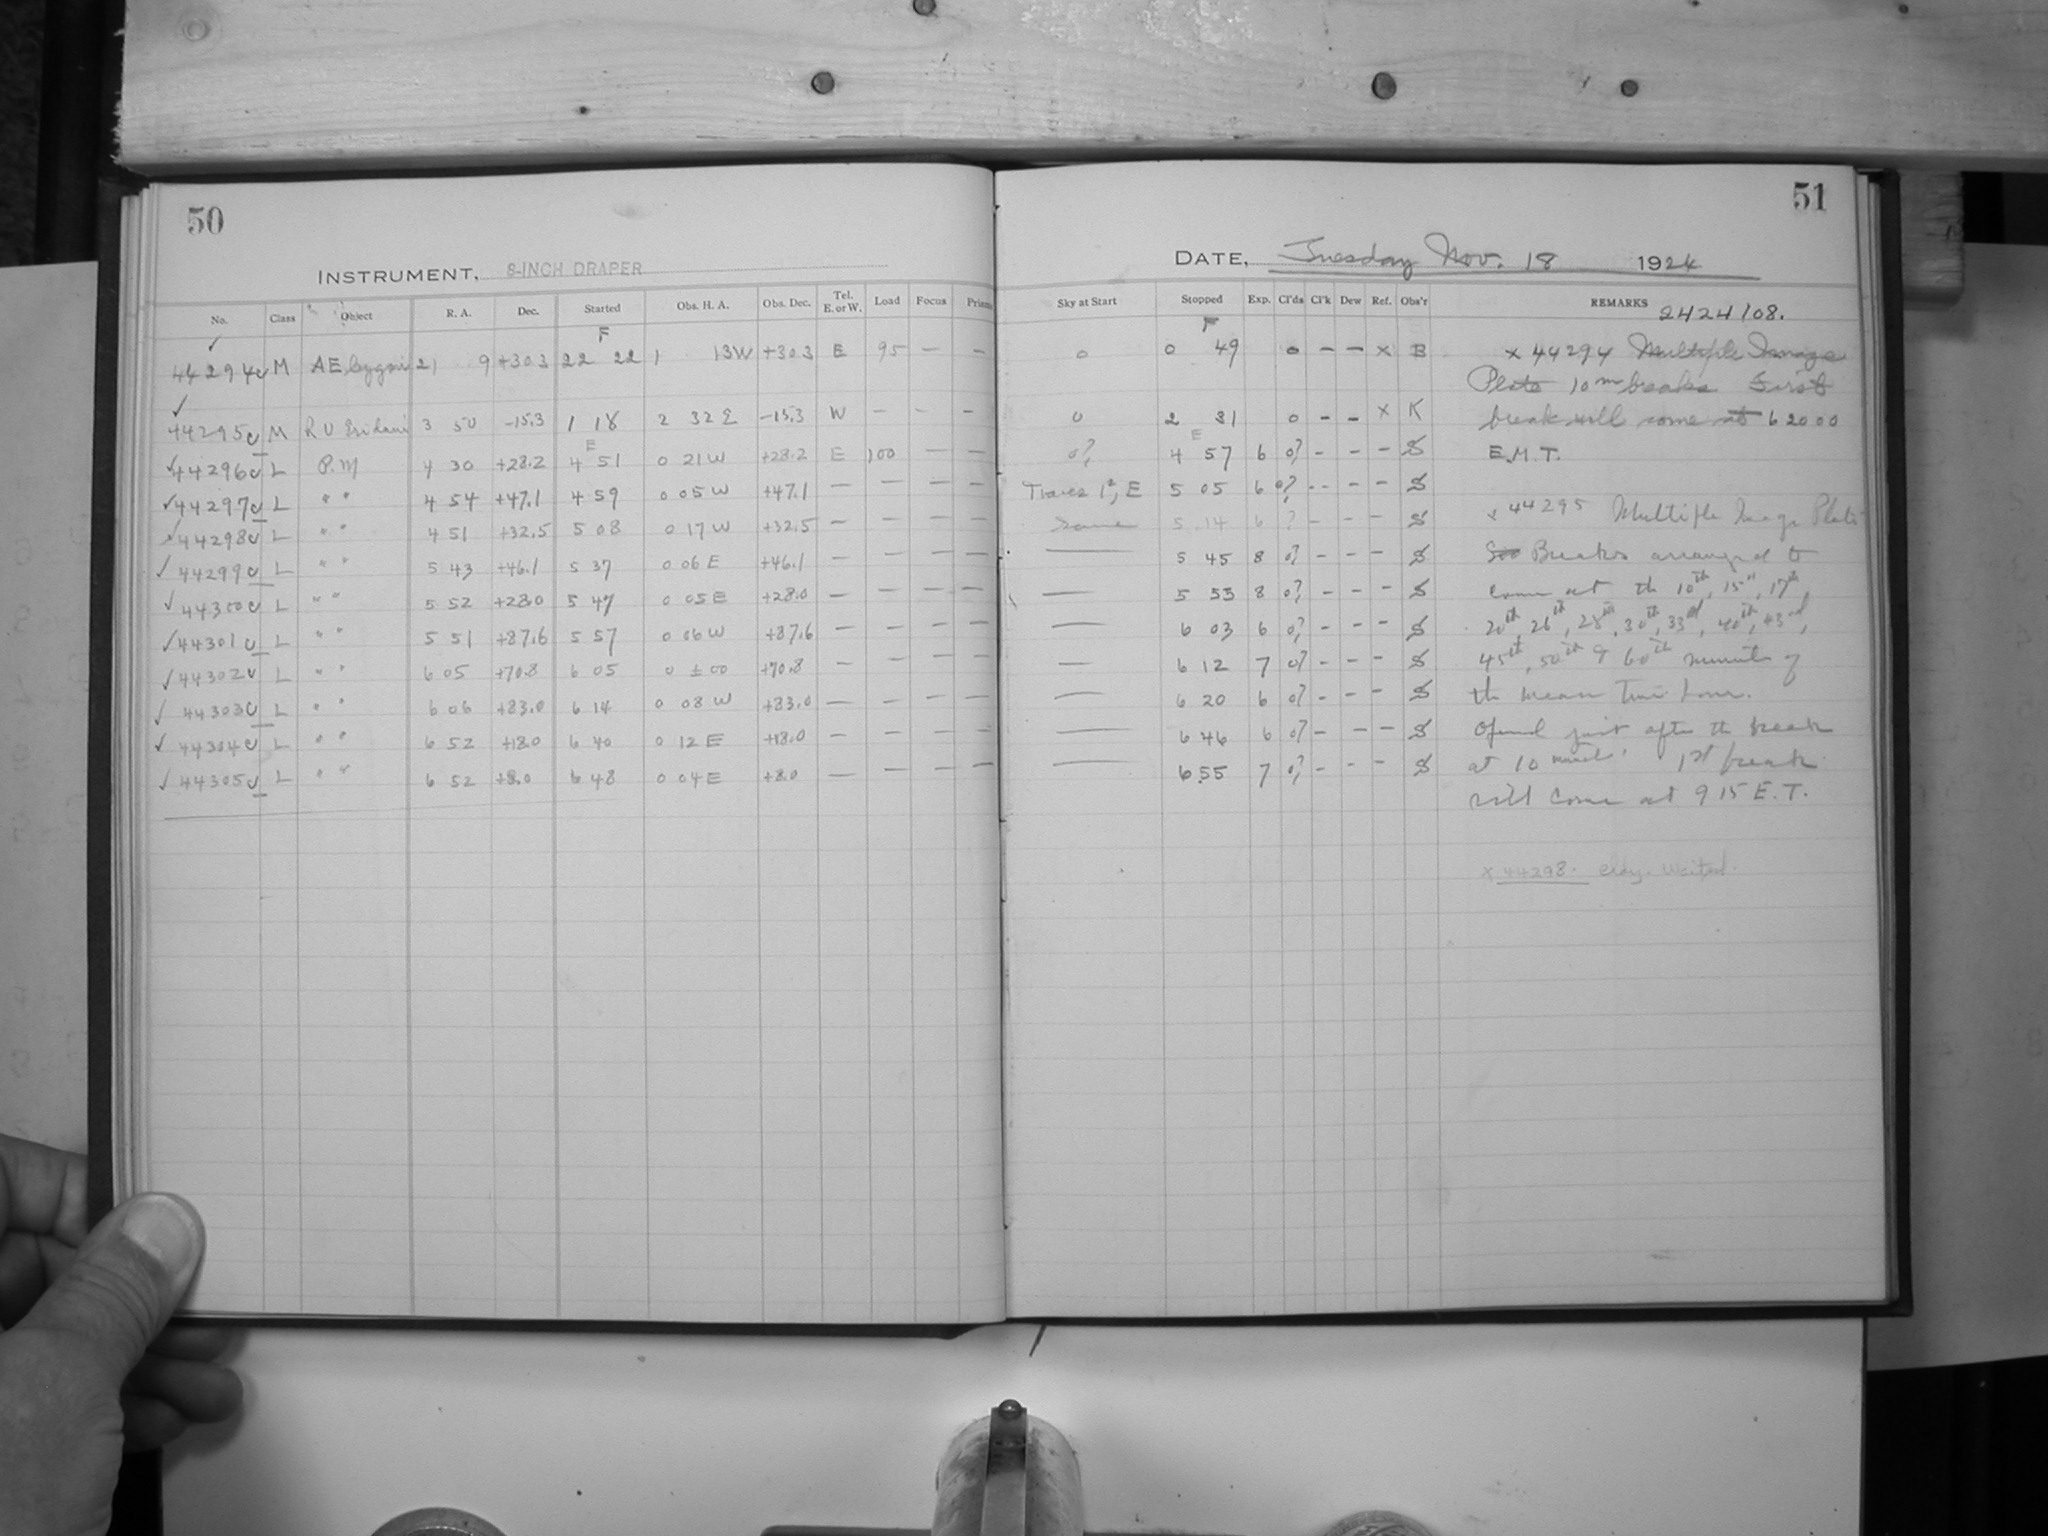 50
INSTRUMENT, 8-INCH DRAPER
No. Class Object R. A. Dec. Started Obs. H. A. Obs. Dec. Tel. E. or W. Load Focus Prism
F
✓ 44294 M AE Cygni 21 9 +30.3 22 22 1 13W +30.3 E 95 — —
✓ 44295 M RU Eridani 3 50 -15.3 1 18 2 32 E -15.3 W — — —
E
✓ 44296 L P.M 4 30 +28.2 4 51 0 21 W +28.2 E 100 — —
✓ 44297 L " " 4 54 +47.1 4 59 0 05 W +47.1 — — — —
✓ 44298 L " " 4 51 +32.5 5 08 0 17 W +32.5 — — — —
✓ 44299 L " " 5 43 +46.1 5 37 0 06 E +46.1 — — — —
✓ 44300 L " " 5 52 +28.0 5 47 0 05 E +28.0 — — — —
✓ 44301 L " " 5 51 +87.6 5 57 0 06 W +87.6 — — — —
✓ 44302 L " " 6 05 +70.8 6 05 0 ±00 +70.8 — — — —
✓ 44303 L " " 6 06 +83.0 6 14 0 08 W +83.0 — — — —
✓ 44304 L " " 6 52 +18.0 6 40 0 12 E +18.0 — — — —
✓ 44305 L " " 6 52 +8.0 6 48 0 04 E +8.0 — — — —
51
DATE, Tuesday Nov. 18 1924
Sky at Start Stopped Exp. Cl'ds Cl'k Dew Ref. Obs'r REMARKS 2424108.
F
0 0 49 0 — — x B
0 2 31 0 - - x K
E
0? 4 57 6 0? - - - S
Traces 1², E 5 05 6 0? - - - S
same 5 14 6 ? - - - S
— 5 45 8 0? - - - S
— 5 53 8 0? - - - S
— 6 03 6 0? - - - S
— 6 12 7 0? - - - S
— 6 20 6 0? - - - S
— 6 46 6 0? - - - S
— 6 55 7 0? - - - S
x 44294 Multiple Image
Plate 10m breaks First
break will come at 6 20 00
E.M.T.
x 44295 Multiple Image Plate
Breaks arranged to
come at th 10th, 15", 17th,
20th, 26th, 28th, 30th, 33rd, 40th, 43rd,
45th, 50th & 60th minute of
th mean Time hour.
Opened just after th break
at 10 1st break
will come at 9 15 E.T.
x 44298. cldy. Waited.